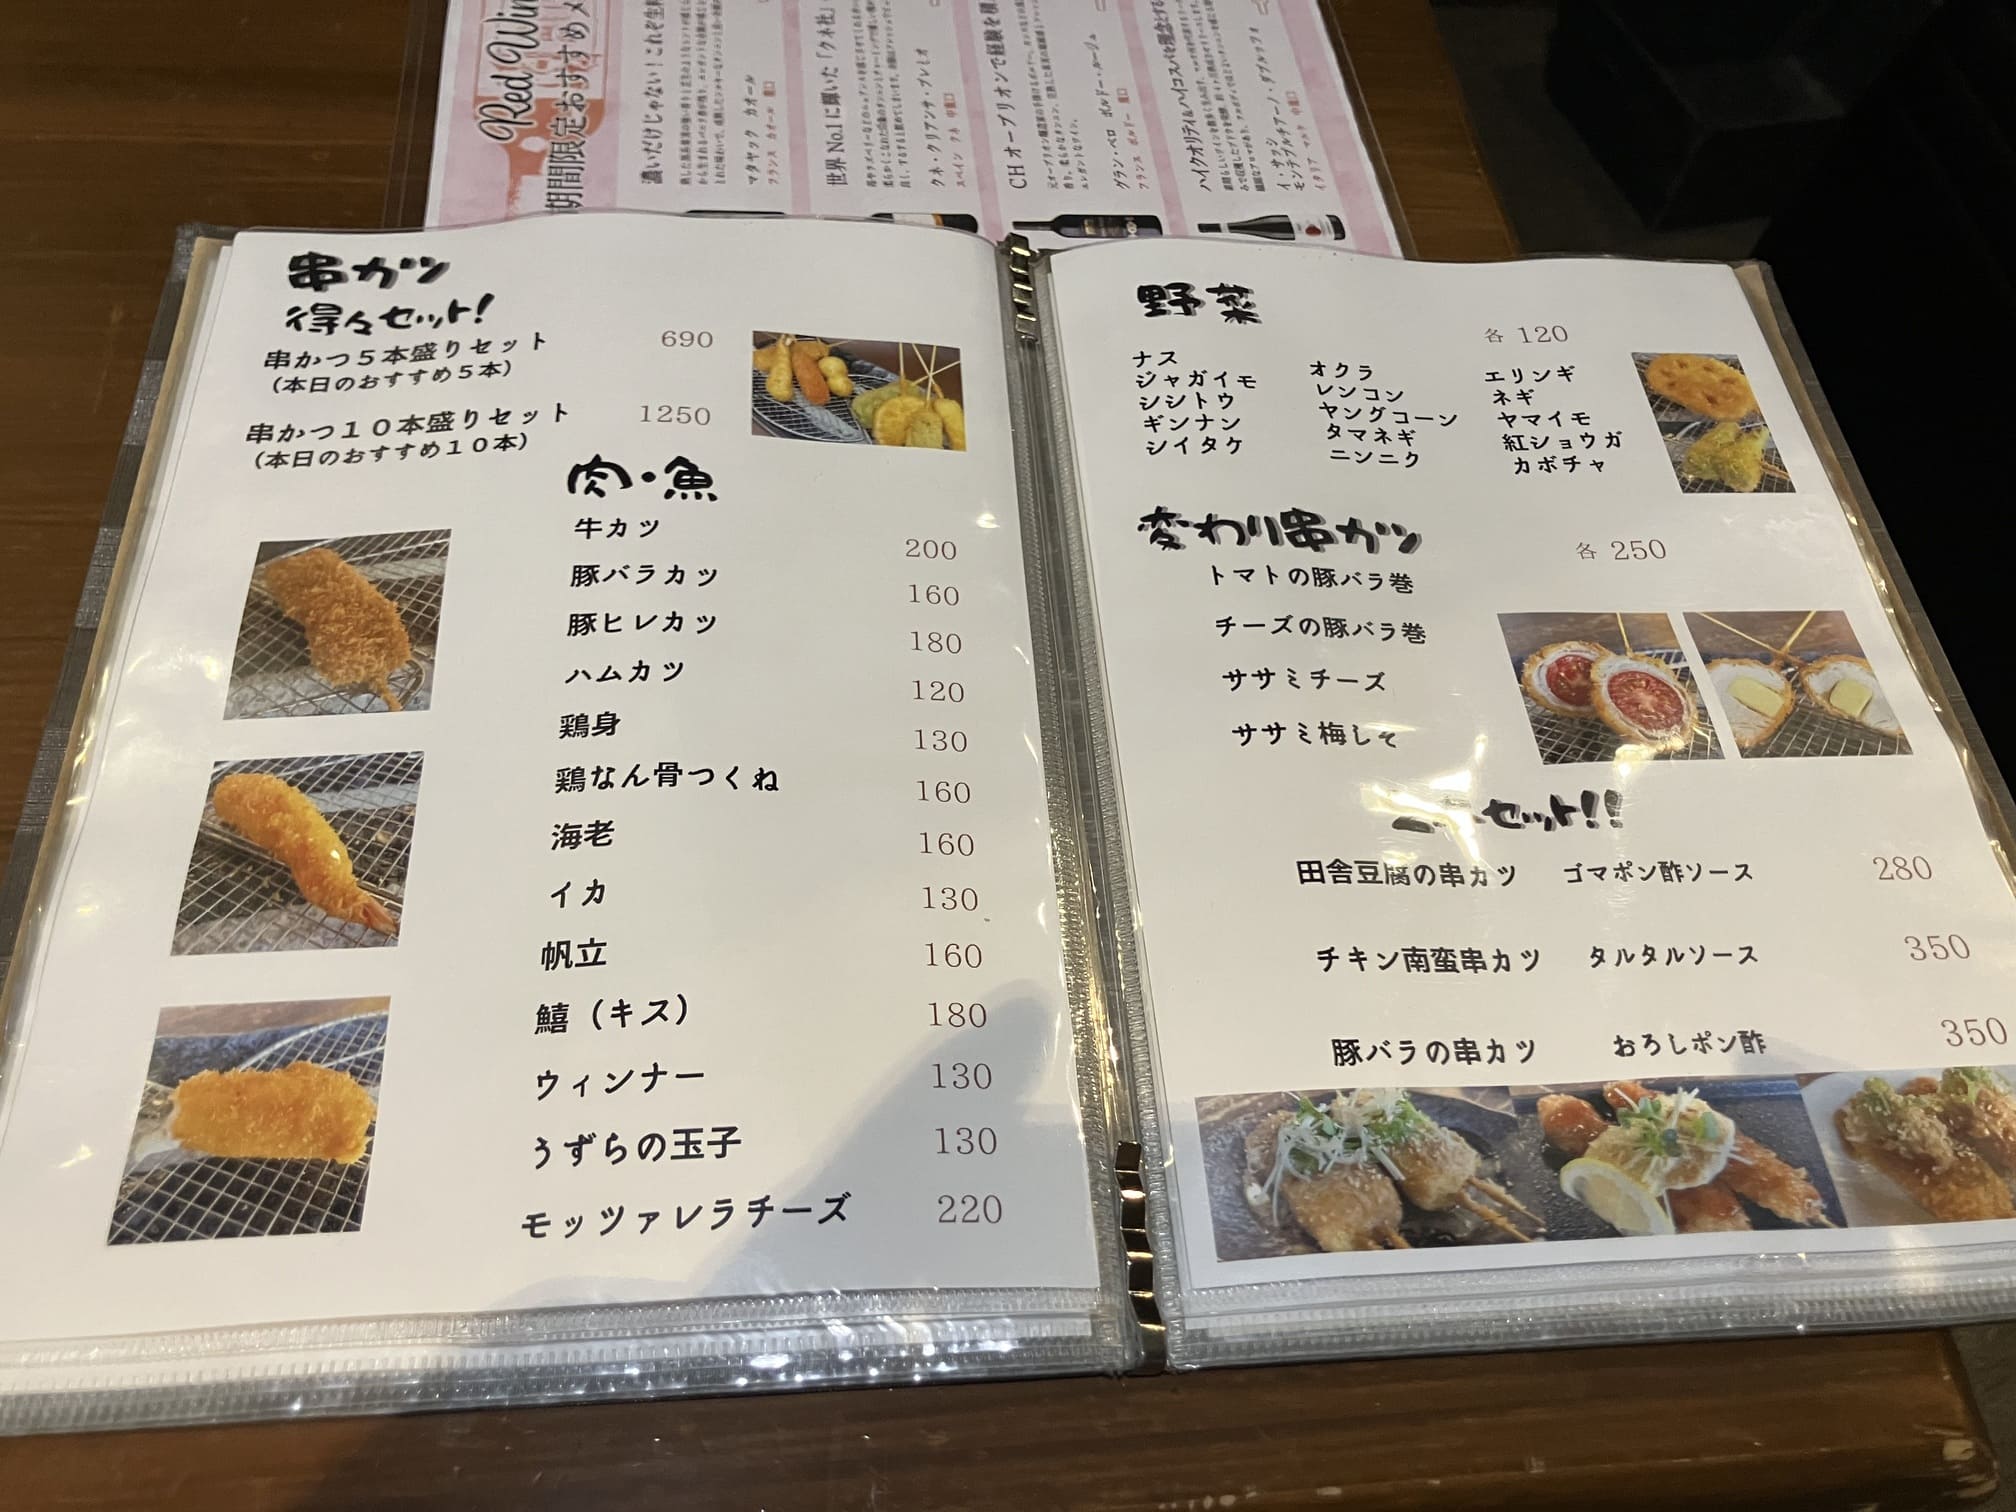 Red Win
期間限定おすすめメ
濃いだけじゃない！これぞ生粋
マタヤック カオール
フランス カオール 重口
世界No.1に輝いた「クネ社」
クネ・クリアンサ・プレミオ
スペイン クネ 中重口
CHオーブリオンで経験を積
グラン・ペロ ボルドー・ルージュ
フランス ボルドー 重口
ハイクオリティ&ハイコスパを理念とする
イ・サッシ
モンテプルチアーノ・ダブルッツォ
イタリア マルケ 中重口
串カツ
得々セット!
串かつ５本盛りセット 690
（本日のおすすめ５本）
串かつ１０本盛りセット 1250
（本日のおすすめ１０本）
肉・魚
牛カツ 200
豚バラカツ 160
豚ヒレカツ 180
ハムカツ 120
鶏身 130
鶏なん骨つくね 160
海老 160
イカ 130
帆立 160
鱚（キス） 180
ウィンナー 130
うずらの玉子 130
モッツァレラチーズ 220
野菜
各 120
ナス オクラ エリンギ
ジャガイモ レンコン ネギ
シシトウ ヤングコーン ヤマイモ
ギンナン タマネギ 紅ショウガ
シイタケ ニンニク カボチャ
変わり串カツ
各 250
トマトの豚バラ巻
チーズの豚バラ巻
ササミチーズ
ササミ梅しそ
セット!!
田舎豆腐の串カツ ゴマポン酢ソース 280
チキン南蛮串カツ タルタルソース 350
豚バラの串カツ おろしポン酢 350